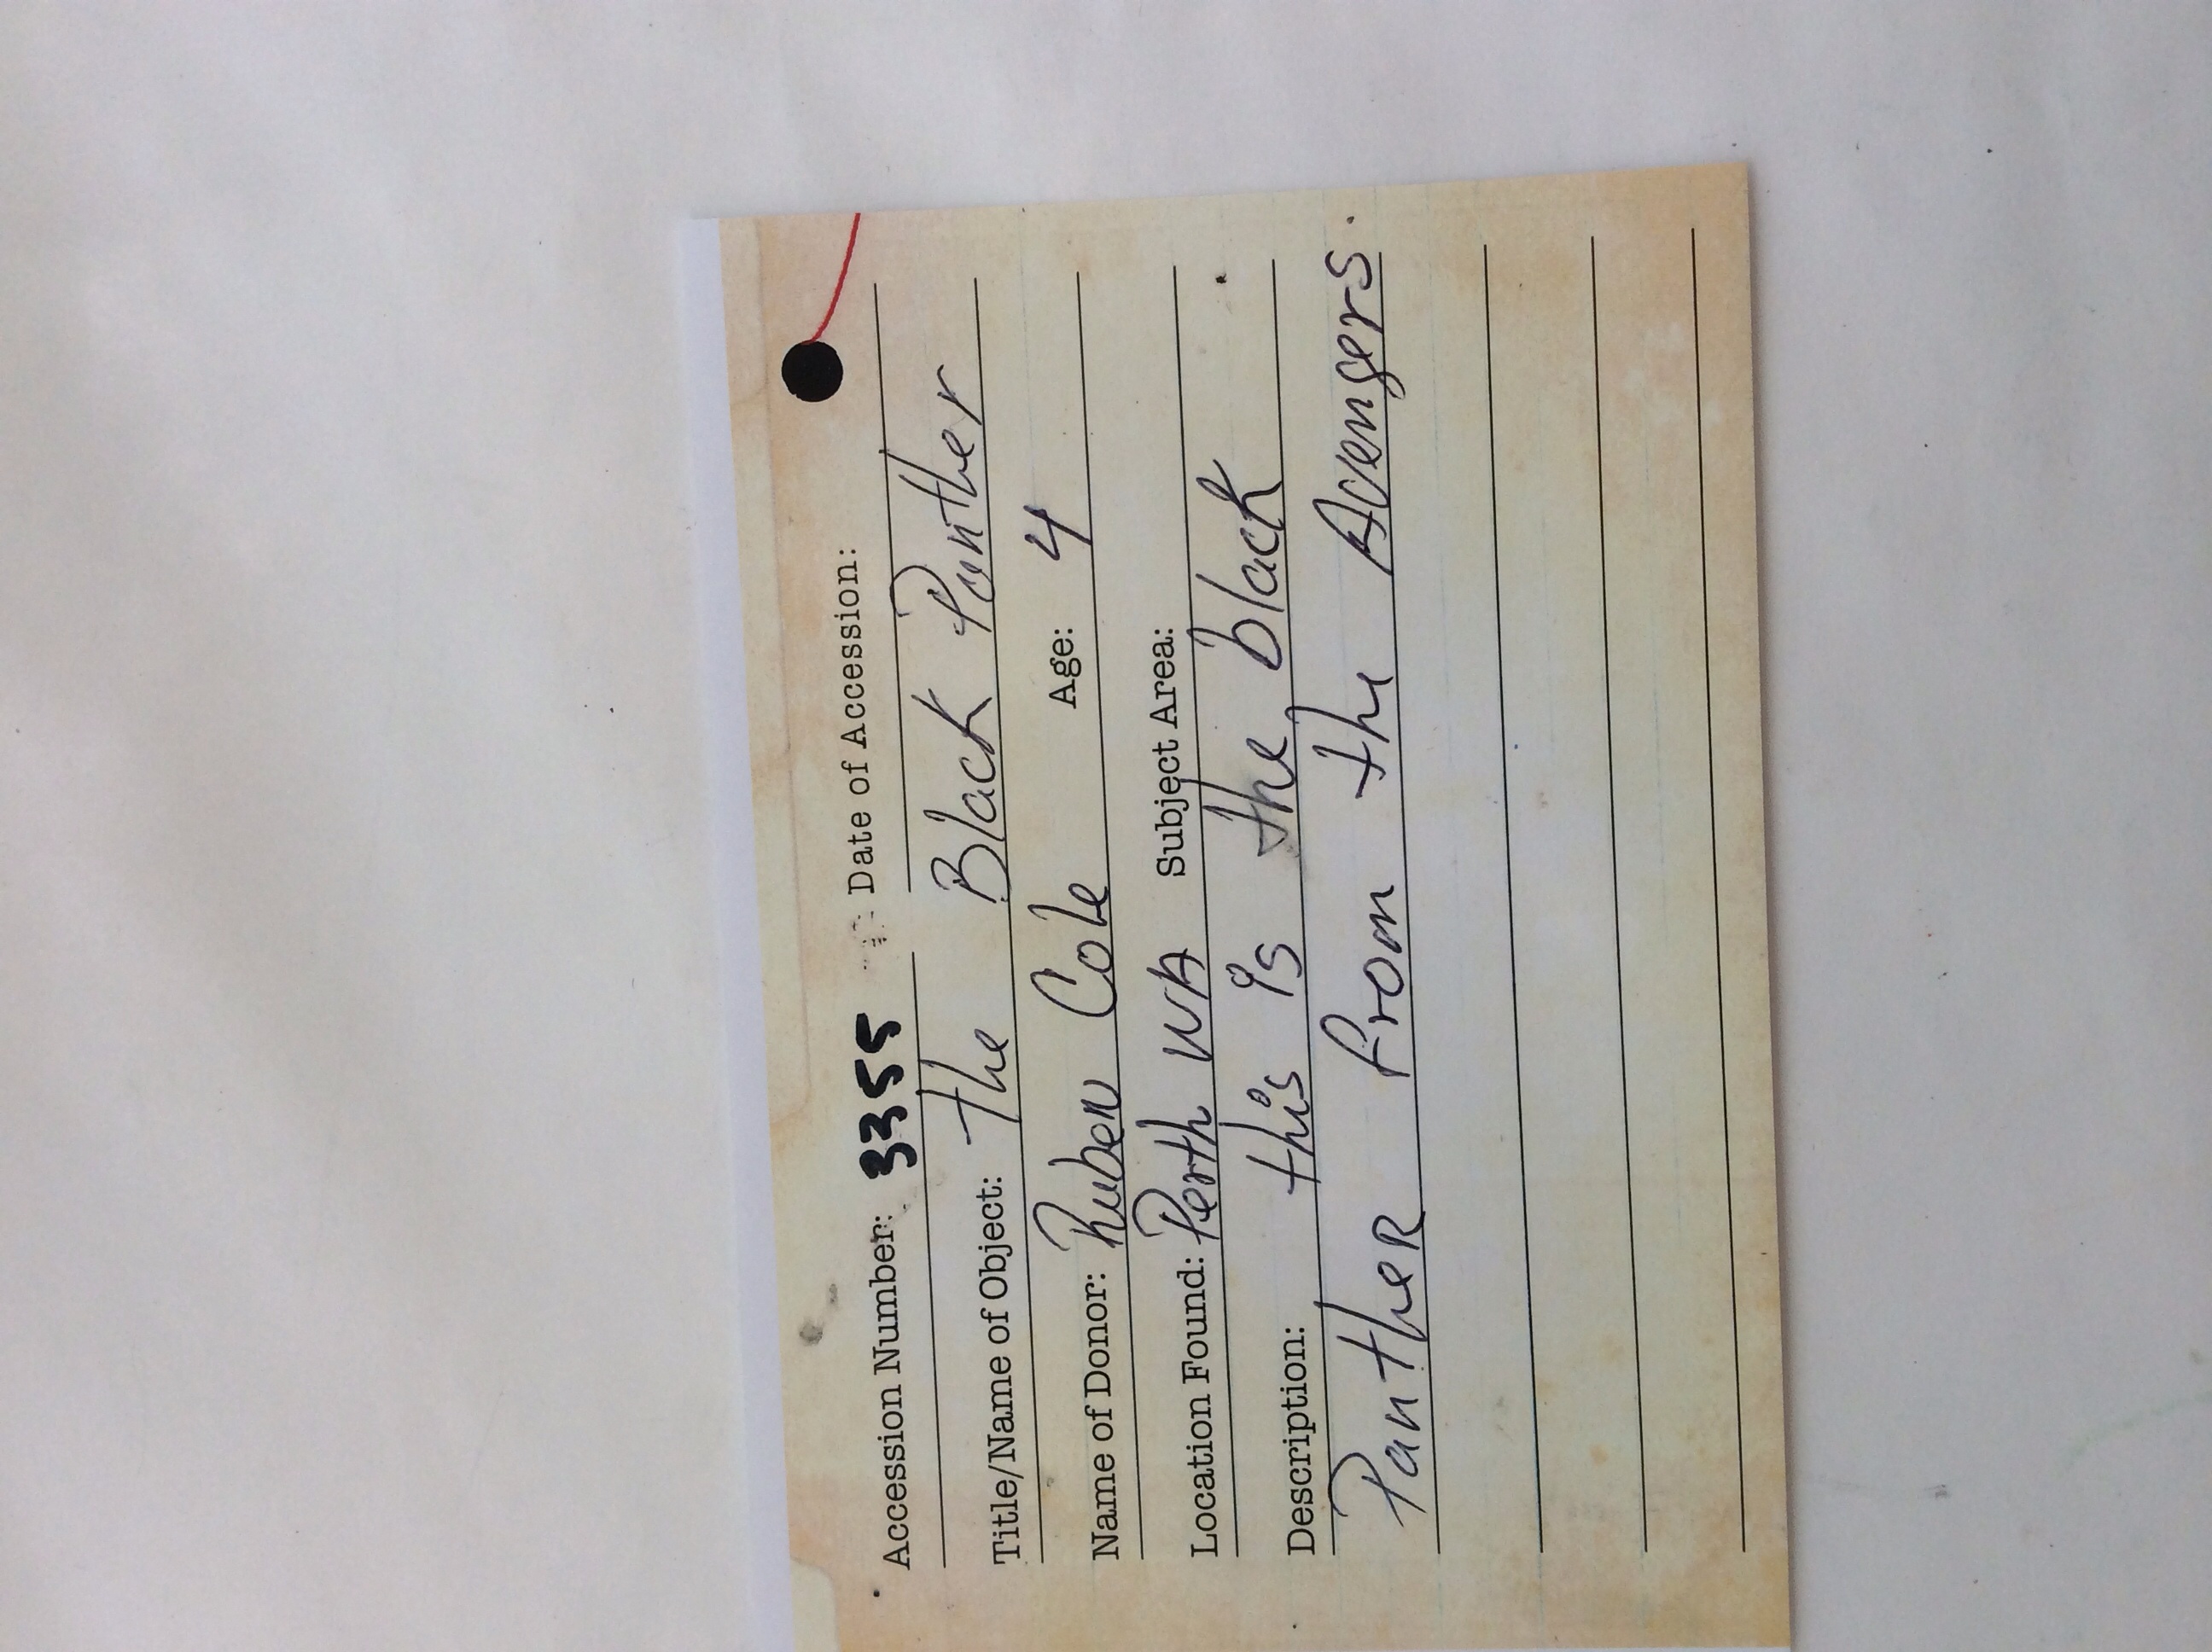 Accession Number: 3355 Date of Accession:
Title/Name of Object: the Black Panther
Name of Donor: Ruben Cole Age: 4
Location Found: Perth WA Subject Area:
Description: this is the black
Panther from the Avengers.